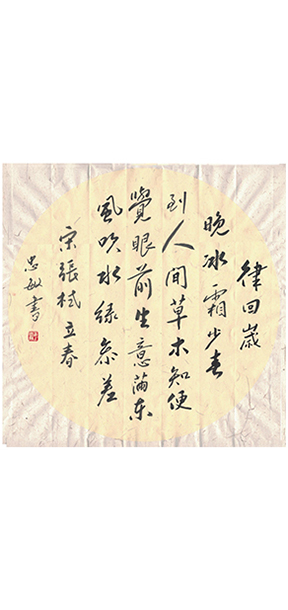 律回歲
晚冰霜少春
到人間草木知便
覺眼前生意滿東
風吹水綠參差
宋張栻立春
忠敏書